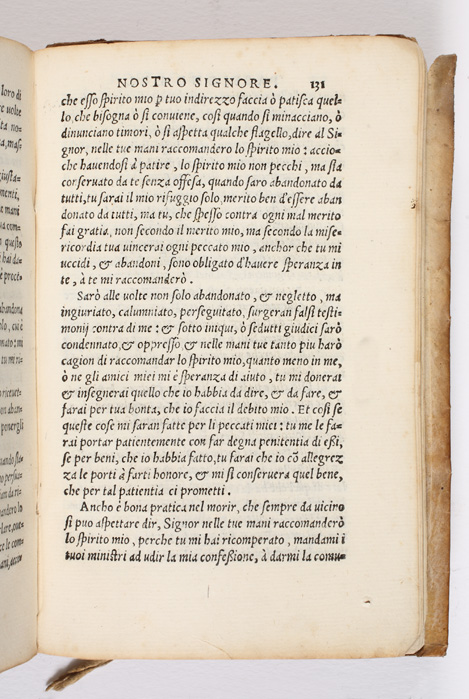 loro di
NOSTRO SIGNORE. 131
che esso spirito mio ꝑ tuo indirezzo faccia ò patisca quel=
lo, che bisogna ò si conviene, così quando si minacciano, ò
dinunciano timori, ò sì aspetta qualche flagello, dire al Si=
gnor, nelle tue mani raccomandero lo spirito mio: accio=
che havendosi à patire, lo spirito mio non pecchi, ma sia
conservato da te senza offesa, quando saro abandonato da
tutti, tu sarai il mio rifuggio solo, merito ben d'essere aban
donato da tutti, ma tu, che spesso contra ogni mal merito
fai gratia, non secondo il merito mio, ma secondo la mise=
ricordia tua vincerai ogni peccato mio, anchor che tu mi
uccidi, & abandoni, sono obligato d'havere speranza in
te, à te mi raccomanderò.
Sarò alle volte non solo abandonato, & negletto, ma
ingiuriato, calumniato, perseguitato, surgeran falsi testi=
monij contra di me: & sotto iniqui, ò sedutti giudici sarò
condennato, & oppresso & nelle mani tue tanto piu harò
cagion di raccomandar lo spirito mio, quanto meno in me,
ò ne gli amici miei mi è speranza di aiuto, tu mi donerai
& insegnerai quello che io habbia da dire, & da fare, &
farai per tua bonta, che io faccia il debito mio. Et cosi se
queste cose mi saran fatte per li peccati miei: tu me le fa=
rai portar patientemente con far degna penitentia di essi,
se per beni, che io habbia fatto, tu farai che io cõ allegrez
za le porti à farti honore, & mi si conservera quel bene,
che per tal patientia ci prometti.
Ancho è bona pratica nel morir, che sempre da vicino
si puo aspettare dir, Signor nelle tue mani raccomanderò
lo spirito mio, perche tu mi hai ricomperato, mandami i
tuoi ministri ad udir la mia confessione, à darmi la comu=